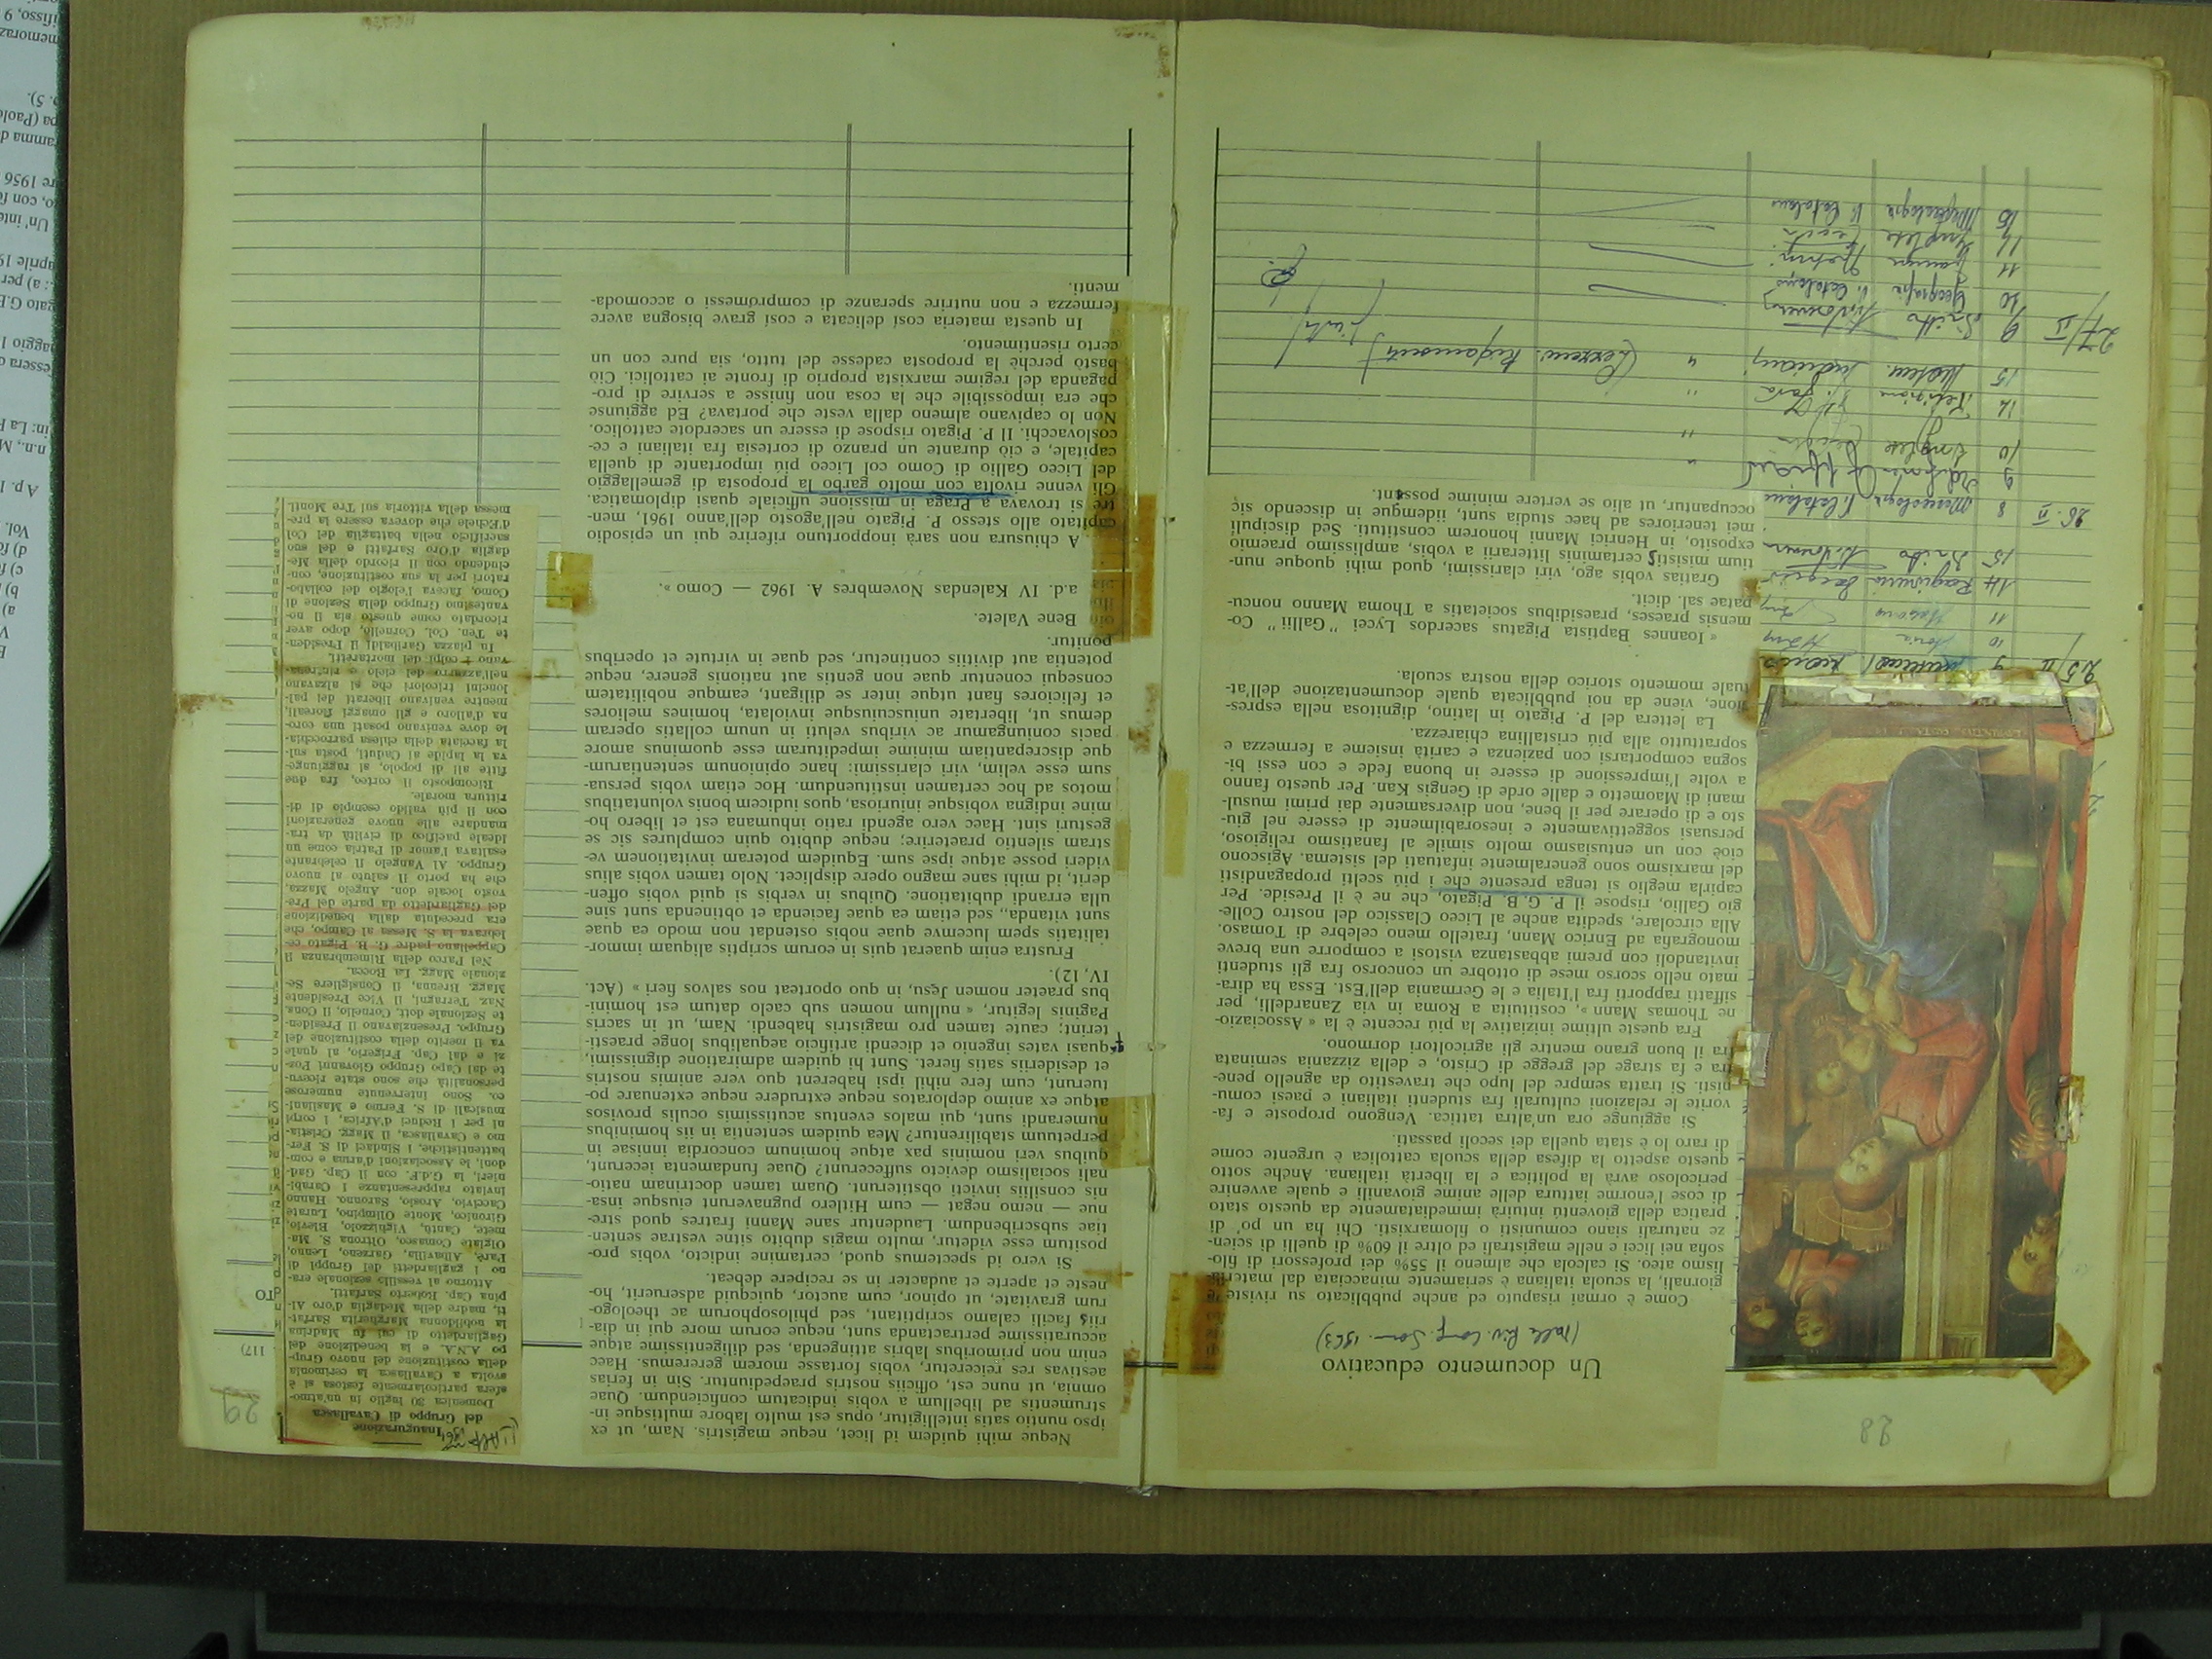 28
Un documento educativo
(dalla Riv. Cong. Som. 1963)
Come è ormai risaputo ed anche pubblicato su riviste e
giornali, la scuola italiana è seriamente minacciata dal materia-
lismo ateo. Si calcola che almeno il 55% dei professori di filo-
sofia nei licei e nelle magistrali ed oltre il 60% di quelli di scien-
ze naturali siano comunisti o filomarxisti. Chi ha un po' di
pratica della gioventù intuirà immediatamente da questo stato
di cose l'enorme iattura delle anime giovanili e quale avvenire
pericoloso avrà la politica e la libertà italiana. Anche sotto
questo aspetto la difesa della scuola cattolica è urgente come
di raro lo è stata quella dei secoli passati.
Si aggiunge ora un'altra tattica. Vengono proposte e fa-
vorite le relazioni culturali fra studenti italiani e paesi comu-
nisti. Si tratta sempre del lupo che travestito da agnello pene-
tra e fa strage del gregge di Cristo, e della zizzania seminata
fra il buon grano mentre gli agricoltori dormono.
Fra queste ultime iniziative la più recente è la « Associazio-
ne Thomas Mann », costituita a Roma in via Zanardelli, per
siffatti rapporti fra l'Italia e le Germania dell'Est. Essa ha dira-
mato nello scorso mese di ottobre un concorso fra gli studenti
invitandoli con premi abbastanza vistosi a comporre una breve
monografia ad Enrico Mann, fratello meno celebre di Tomaso.
Alla circolare, spedita anche al Liceo Classico del nostro Colle-
gio Gallio, rispose il P. G. B. Pigato, che ne è il Preside. Per
capirla meglio si tenga presente che i più scelti propagandisti
del marxismo sono generalmente infatuati del sistema. Agiscono
cioè con un entusiasmo molto simile al fanatismo religioso,
persuasi soggettivamente e inesorabilmente di essere nel giu-
sto e di operare per il bene, non diversamente dai primi musul-
mani di Maometto e dalle orde di Gengis Kan. Per questo fanno
a volte l'impressione di essere in buona fede e con essi bi-
sogna comportarsi con pazienza e carità insieme a fermezza e
soprattutto alla più cristallina chiarezza.
La lettera del P. Pigato in latino, dignitosa nella espres-
sione, viene da noi pubblicata quale documentazione dell'at-
tuale momento storico della nostra scuola.
« Ioannes Baptista Pigatus sacerdos Lycei "Gallii" Co-
mensis praeses, praesidibus societatis a Thoma Manno noncu-
patae sal. dicit.
Gratias vobis ago, viri clarissimi, quod mihi quoque nun-
tium misistis certaminis litterarii a vobis, amplissimo praemio
exposito, in Henrici Manni honorem constituti. Sed discipuli
mei teneriores ad haec studia sunt, iidemque in discendo sic
occupantur, ut alio se vertere minime possent.
25/II 9
10 Storia
11
14 Ragioneria
15 Diritto
26. II 8 Merceologia V. Catalano
9
10 Inglese
14 Religione
15 Matem.
27/II 9 Diritto
10 Geografia V. Catalano
11
14 Inglese
15 Merceologia V. Catalano
29
Neque mihi quidem id licet, neque magistris. Nam, ut ex
ipso nuntio satis intelligitur, opus est multo labore multisque in-
strumentis ad libellum a vobis indicatum conficiendum. Quae
omnia, ut nunc est, officiis nostris praepediuntur. Sin in ferias
aestivas res reiceretur, vobis fortasse morem gereremus. Haec
enim non primoribus labris attingenda, sed diligentissime atque
accuratissime pertractanda sunt, neque eorum more qui in dia-
riis facili calamo scriptitant, sed philosophorum ac theologo-
rum gravitate, ut opinor, cum auctor, quicquid adseruerit, ho-
neste et aperte et audacter in se recipere debeat.
Si vero id spectemus quod, certamine indicto, vobis pro-
positum esse videtur, multo magis dubito sitne vestrae senten-
tiae subscribendum. Laudentur sane Manni fratres quod stre-
nue — nemo negat — cum Hitlero pugnaverunt eiusque insa-
nis consiliis invicti obstiterunt. Quam tamen doctrinam natio-
nali socialismo devicto suffecerunt? Quae fundamenta iecerunt,
quibus veri nominis pax atque hominum concordia innisae in
perpetuum stabilirentur? Mea quidem sententia in iis hominibus
numerandi sunt, qui malos eventus acutissimis oculis provisos
atque ex animo deploratos neque extrudere neque extenuare po-
tuerunt, cum fere nihil ipsi haberent quo vere animis nostris
et desideriis satis fieret. Sunt hi quidem admiratione dignissimi,
quasi vates ingenio et dicendi artificio aequalibus longe praesti-
terint; caute tamen pro magistris habendi. Nam, ut in sacris
Paginis legitur, « nullum nomen sub caelo datum est homini-
bus praeter nomen Jesu, in quo oporteat nos salvos fieri » (Act.
IV, 12).
Frustra enim quaerat quis in eorum scriptis aliquam immor-
talitatis spem lucemve quae nobis ostendat non modo ea quae
sunt vitanda,, sed etiam ea quae facienda et obtinenda sunt sine
ulla errandi dubitatione. Quibus in verbis si quid vobis offen-
derit, id mihi sane magno opere displicet. Nolo tamen vobis alius
videri posse atque ipse sum. Equidem poteram invitationem ve-
stram silentio praeterire; neque dubito quin complures sic se
gesturi sint. Haec vero agendi ratio inhumana est et libero ho-
mine indigna vobisque iniuriosa, quos iudicem bonis voluntatibus
motos ad hoc certamen instituendum. Hoc etiam vobis persua-
sum esse velim, viri clarissimi: hanc opinionum sententiarum-
que discrepantiam minime impedituram esse quominus amore
pacis coniungamur ac viribus veluti in unum collatis operam
demus ut, libertate uniuscuiusque inviolata, homines meliores
et feliciores fiant utque inter se diligant, eamque nobilitatem
consequi conentur quae non gentis aut nationis genere, neque
potentia aut divitiis continetur, sed quae in virtute et operibus
ponitur.
Bene Valete.
a.d. IV Kalendas Novembres A. 1962 — Como ».
A chiusura non sarà inopportuno riferire qui un episodio
capitato allo stesso P. Pigato nell'agosto dell'anno 1961, men-
tre si trovava a Praga in missione ufficiale quasi diplomatica.
Gli venne rivolta con molto garbo la proposta di gemellaggio
del Liceo Gallio di Como col Liceo più importante di quella
capitale, e ciò durante un pranzo di cortesia fra italiani e ce-
coslovacchi. Il P. Pigato rispose di essere un sacerdote cattolico.
Non lo capivano almeno dalla veste che portava? Ed aggiunse
che era impossibile che la cosa non finisse a servire di pro-
paganda del regime marxista proprio di fronte ai cattolici. Ciò
bastò perchè la proposta cadesse del tutto, sia pure con un
certo risentimento.
In questa materia così delicata e così grave bisogna avere
fermezza e non nutrire speranze di compromessi o accomoda-
menti.
Inaugurazione
del Gruppo di Cavallasca
Domenica 30 luglio in un'atmo-
sfera particolarmente festosa si è
svolta a Cavallasca la cerimonia
della costituzione del nuovo Grup-
po A.N.A. e la benedizione del
Gagliardetto di cui fu Madrina
la nobildonna Margherita Sarfat-
ti, madre della Medaglia d'oro Al-
pina Cap. Roberto Sarfatti.
Attorno al vessillo sezionale era-
no i gagliardetti dei Gruppi di
Parè, Albavilla, Garzeno, Lenno,
Olgiate Comasco, Oltrona S. Ma-
mete, Cantù, Vighizzolo, Blevio,
Gironico, Monte Olimpino, Lurate
Caccivio, Arosio, Saronno. Hanno
inviato rappresentanze i Carabi-
nieri, la G.d.F. con il Cap. Gad-
doni, le Associazioni d'arma e com-
battentistiche, i Sindaci di S. Fer-
mo e Cavallasca, il Magg. Cristia-
ni per i Reduci d'Africa, i corpi
musicali di S. Fermo e Masliani-
co. Sono intervenute numerose
personalità che sono state ricevu-
te dal Capo Gruppo Giovanni Poz-
zi e dal Cap. Frigerio, al quale
va il merito della costituzione del
Gruppo. Presenziavano il Presiden-
te Sezionale dott. Cornelio, il Cons.
Naz. Terragni, il Vice Presidente
Magg. Brenna, il Consigliere Se-
zionale Magg. La Rocca.
Nel Parco della Rimembranza il
Cappellano padre G. B. Pigato ce-
lebrava la S. Messa al Campo, che
era preceduta dalla benedizione
del Gagliardetto da parte del Pre-
vosto locale don. Angelo Mazza,
che ha porto il saluto al nuovo
Gruppo. Al Vangelo il celebrante
esaltava l'amor di Patria come un
ideale pacifico di civiltà da tra-
mandare alle nuove generazioni
con il più valido esempio di di-
rittura morale.
Ricomposto il corteo, fra due
fitte ali di popolo, si raggiunge-
va la lapide ai Caduti, posta sul-
la facciata della chiesa parrocchia-
le dove venivano posati una coro-
na d'alloro e gli omaggi floreali,
mentre venivano liberati dei pal-
loncini tricolori che si alzavano
nell'azzurro del cielo e rintrona-
vano i colpi dei mortaretti.
In piazza Garibaldi il Presiden-
te Ten. Col. Cornelio, dopo aver
ricordato come questo sia il no-
vantesimo Gruppo della Sezione di
Como, faceva l'elogio dei collabo-
ratori per la sua costituzione, con-
cludendo con il ricordo della Me-
daglia d'Oro Sarfatti e del suo
sacrificio nella battaglia del Col
d'Echele che doveva essere la pre-
messa della vittoria sui Tre Monti.